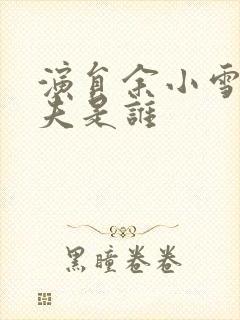 演員余小雪
夫是誰
黑瞳卷卷